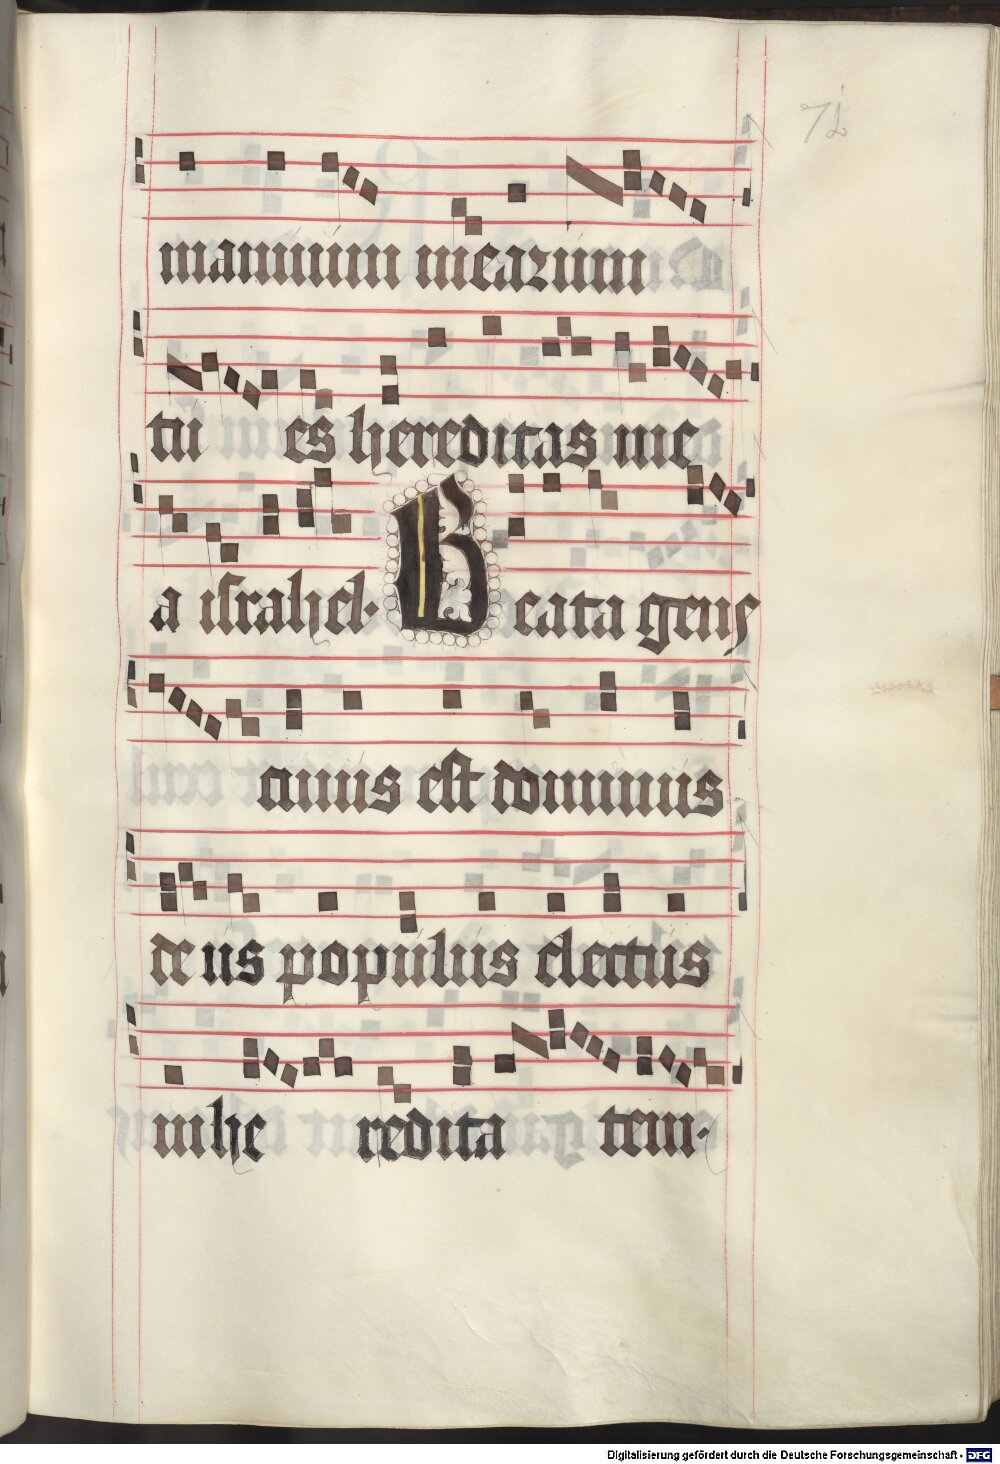 71
manuum mearum
tu es hereditas me
a israhel· Beata gens
cuius est dominus
deus populus electus
inhe redita tem·
Digitalisierung gefördert durch die Deutsche Forschungsgemeinschaft - DFG